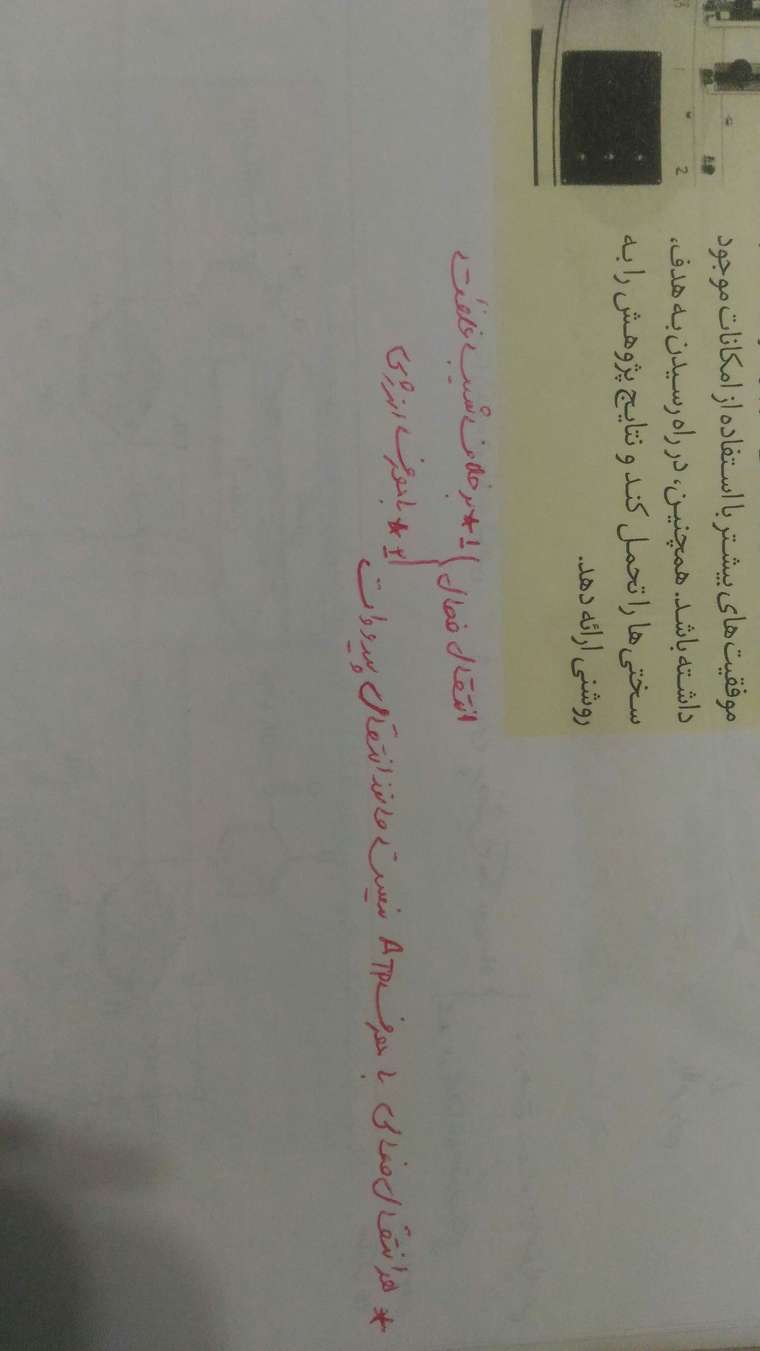 موفقیت‌های بیشتر با استفاده از امکانات موجود
داشته باشد. همچنین، در راه رسیدن به هدف،
سختی‌ها را تحمل کند و نتایج پژوهش را به
روشنی ارائه دهد.
انتقال فعال ۱* برخلاف شیب غلظت
۲* با صرف انرژی
* هر انتقال فعالی با صرف ATP نیست مانند انتقال پیرووات
2